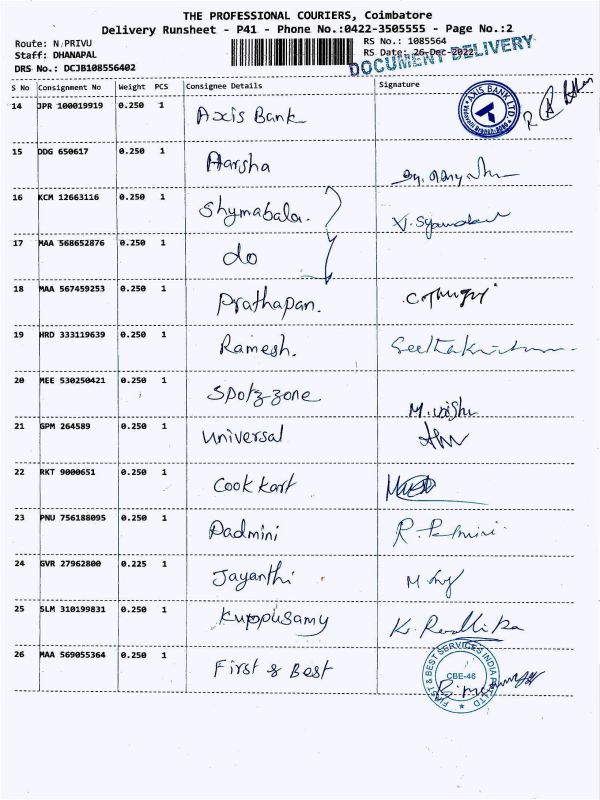 THE PROFESSIONAL COURIERS, Coimbatore
Delivery Runsheet - P41 - Phone No.:0422-3505555 - Page No.:2
Route: N PRIVU
RS No.: 1085564
Staff: DHANAPAL
RS Date: 26-Dec-2022
DOCUMENT DELIVERY
DRS No.: DCJB108556402
S No Consignment No Weight PCS Consignee Details Signature
14 JPR 100019919 0.250 1 Axis Bank
AXIS BANK LTD
15 DDG 650617 0.250 1 Harsha
16 KCM 12663116 0.250 1 Shymabala.
17 MAA 568652876 0.250 1 do
18 MAA 567459253 0.250 1 Prathapan.
19 HRD 333119639 0.250 1 Ramesh.
20 MEE 530250421 0.250 1 Spotzzone
21 GPM 264589 0.250 1 Universal
22 RKT 9000651 0.250 1 Cook kart
23 PNU 756188095 0.250 1 Padmini R. Padmini
24 GVR 27962800 0.225 1 Jayanthi
25 SLM 310199831 0.250 1 Kuppusamy
26 MAA 569055364 0.250 1 First & Best
FIRST & BEST SERVICES INDIA P LTD
CBE-46